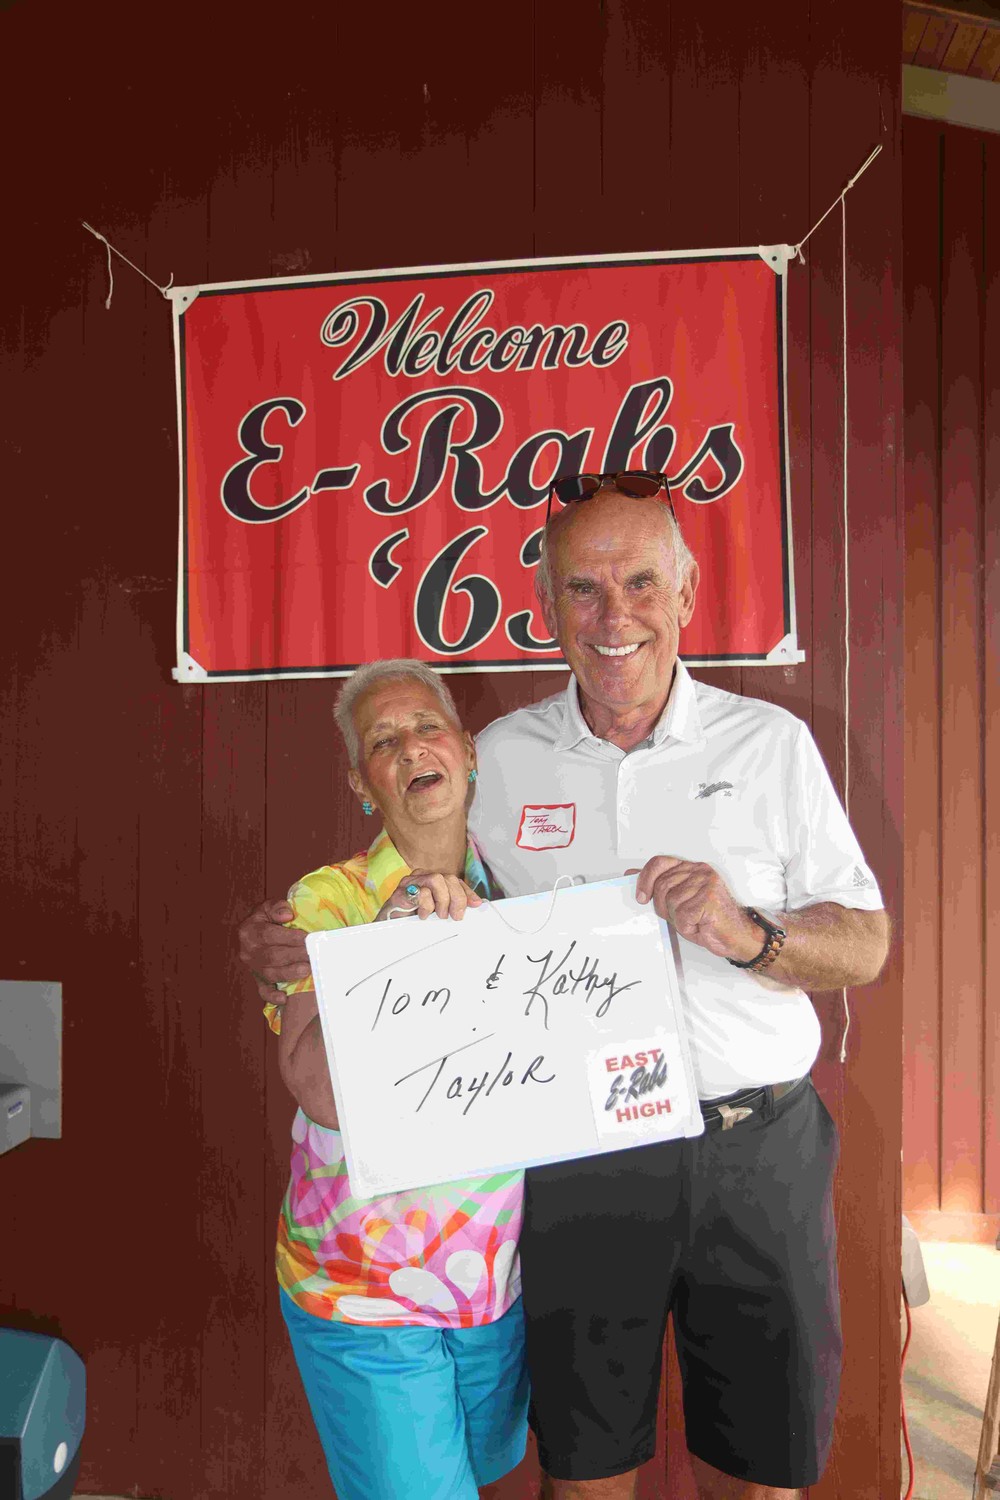 Welcome
E-Rabs
'63
Tom
Taylor
Tom & Kathy
Taylor
EAST
E-Rabs
HIGH